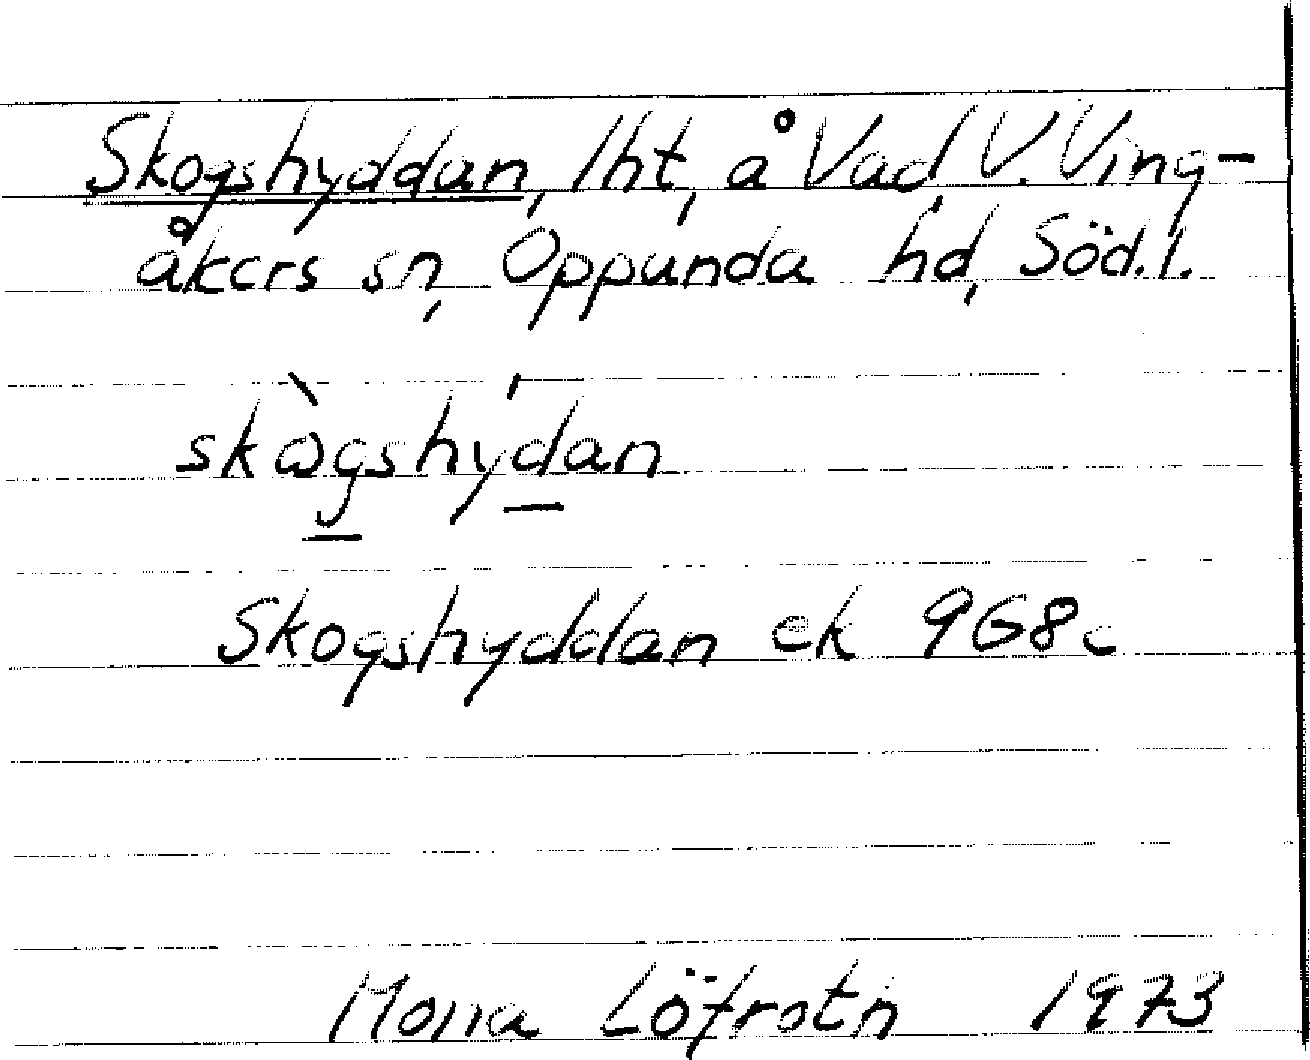 Skogshyddan, lht, å Vad V. Ving-
åkers sn, Oppunda hd, Söd.l.
skò̀gshýdan
Skogshyddan ek 9G8c
Mona Löfroth 1973